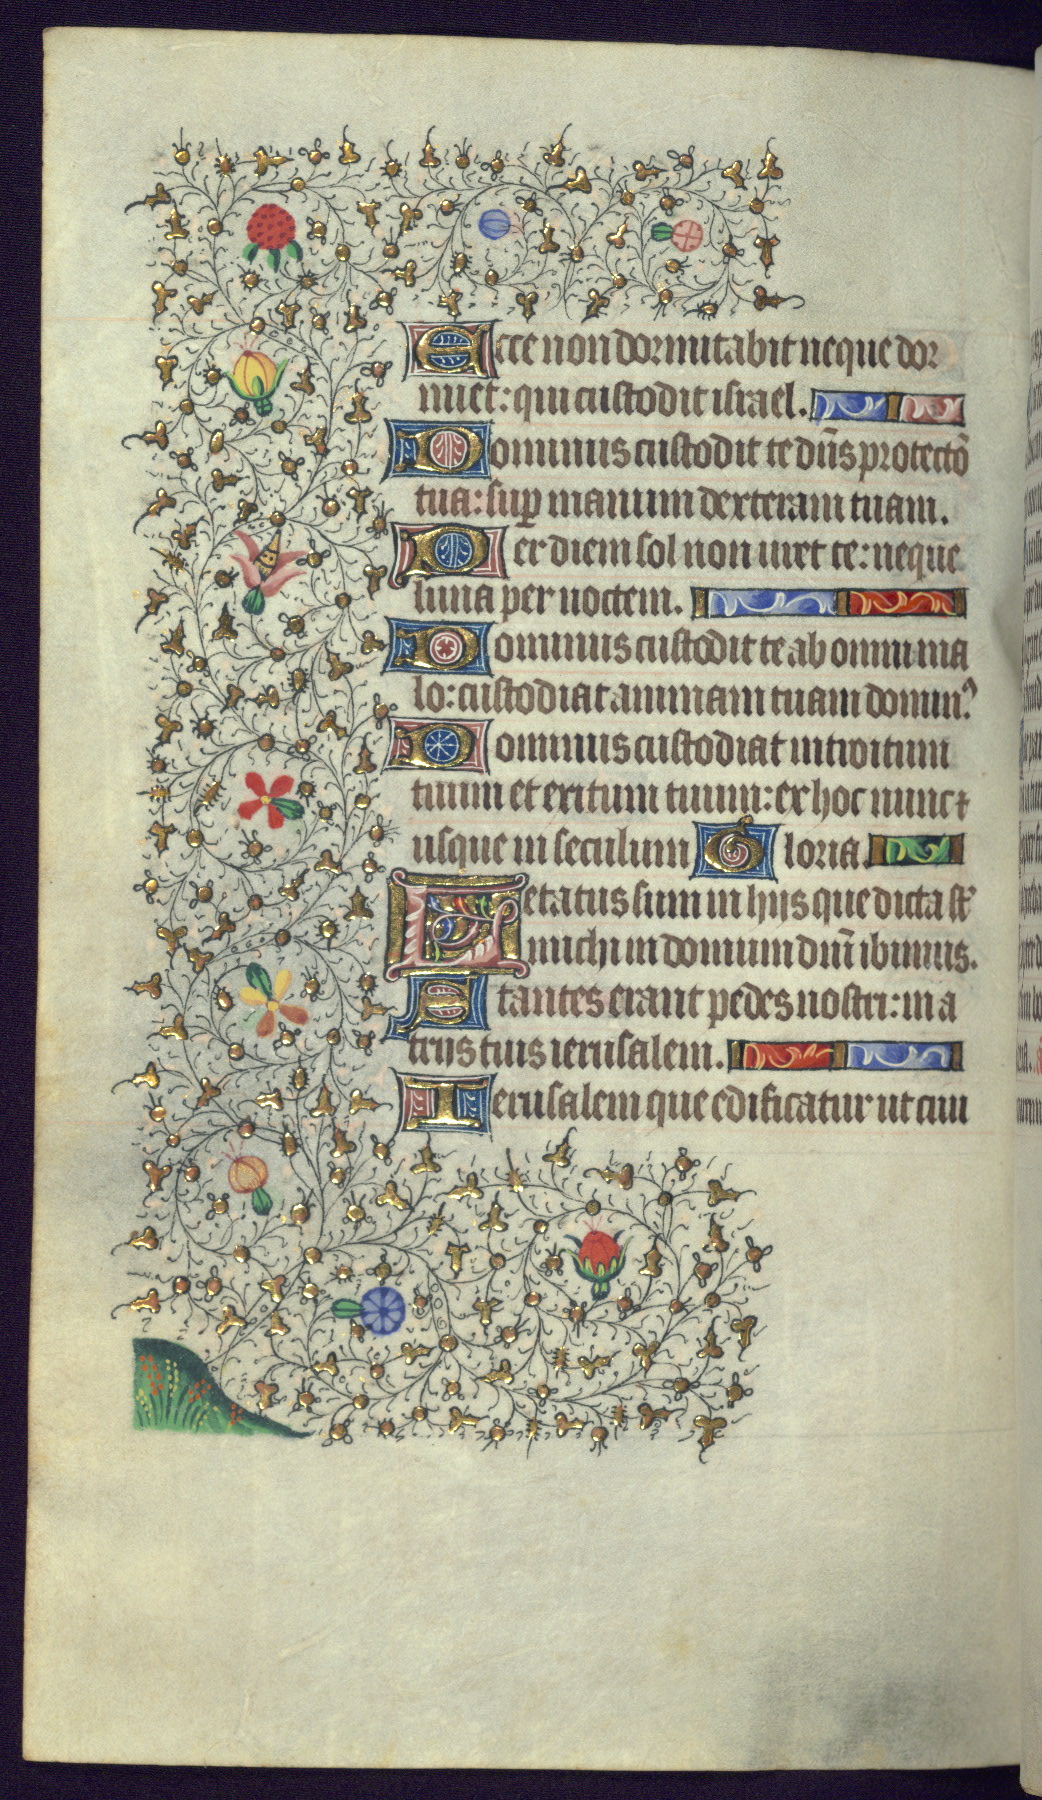 Ecce non dormitabit neque dor
miet: qui custodit israel.
Dominus custodit te dn̄s protectō
tua: sup̱ manum dexteram tuam.
Per diem sol non uret te: neque
luna per noctem.
Dominus custodit te ab omni ma
lo: custodiat animam tuam dominꝰ
Dominus custodiat introitum
tuum et exitum tuum: ex hoc nunc ⁊
usque in seculum Gloria.
Letatus sum in hiis que dicta st̄
michi in domum dn̄i ibimus.
Stantes erant pedes nostri: in a
triis tuis ierusalem.
Ierusalem que edificatur ut ciui